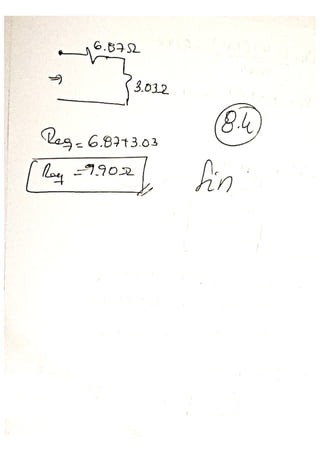 6.87Ω
3.03Ω
8.4
Req = 6.87+3.03
Req = 9.90Ω
fin